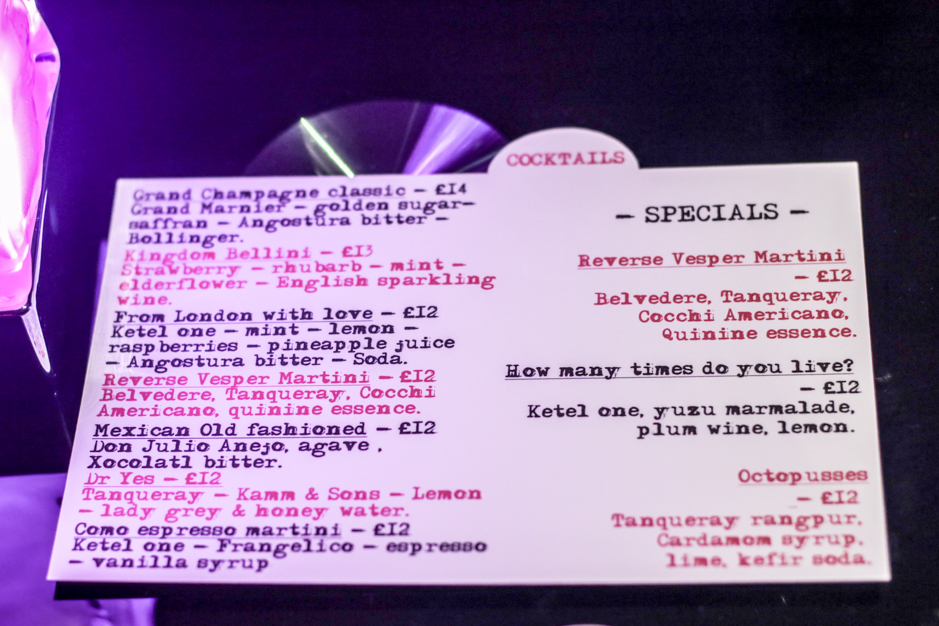 COCKTAILS
Grand Champagne classic – £14
Grand Marnier – golden sugar–
saffran – Angostura bitter –
Bollinger.
Kingdom Bellini – £13
Strawberry – rhubarb – mint –
elderflower – English sparkling
wine.
From London with love – £12
Ketel one – mint – lemon –
raspberries – pineapple juice
– Angostura bitter – Soda.
Reverse Vesper Martini – £12
Belvedere, Tanqueray, Cocchi
Americano, quinine essence.
Mexican Old fashioned – £12
Don Julio Anejo, agave ,
Xocolatl bitter.
Dr Yes – £12
Tanqueray – Kamm & Sons – Lemon
– lady grey & honey water.
Como espresso martini – £12
Ketel one – Frangelico – espresso
– vanilla syrup
– SPECIALS –
Reverse Vesper Martini
– £12
Belvedere, Tanqueray,
Cocchi Americano,
Quinine essence.
How many times do you live?
– £12
Ketel one, yuzu marmalade,
plum wine, lemon.
Octopusses
– £12
Tanqueray rangpur,
Cardamom syrup,
lime, kefir soda.